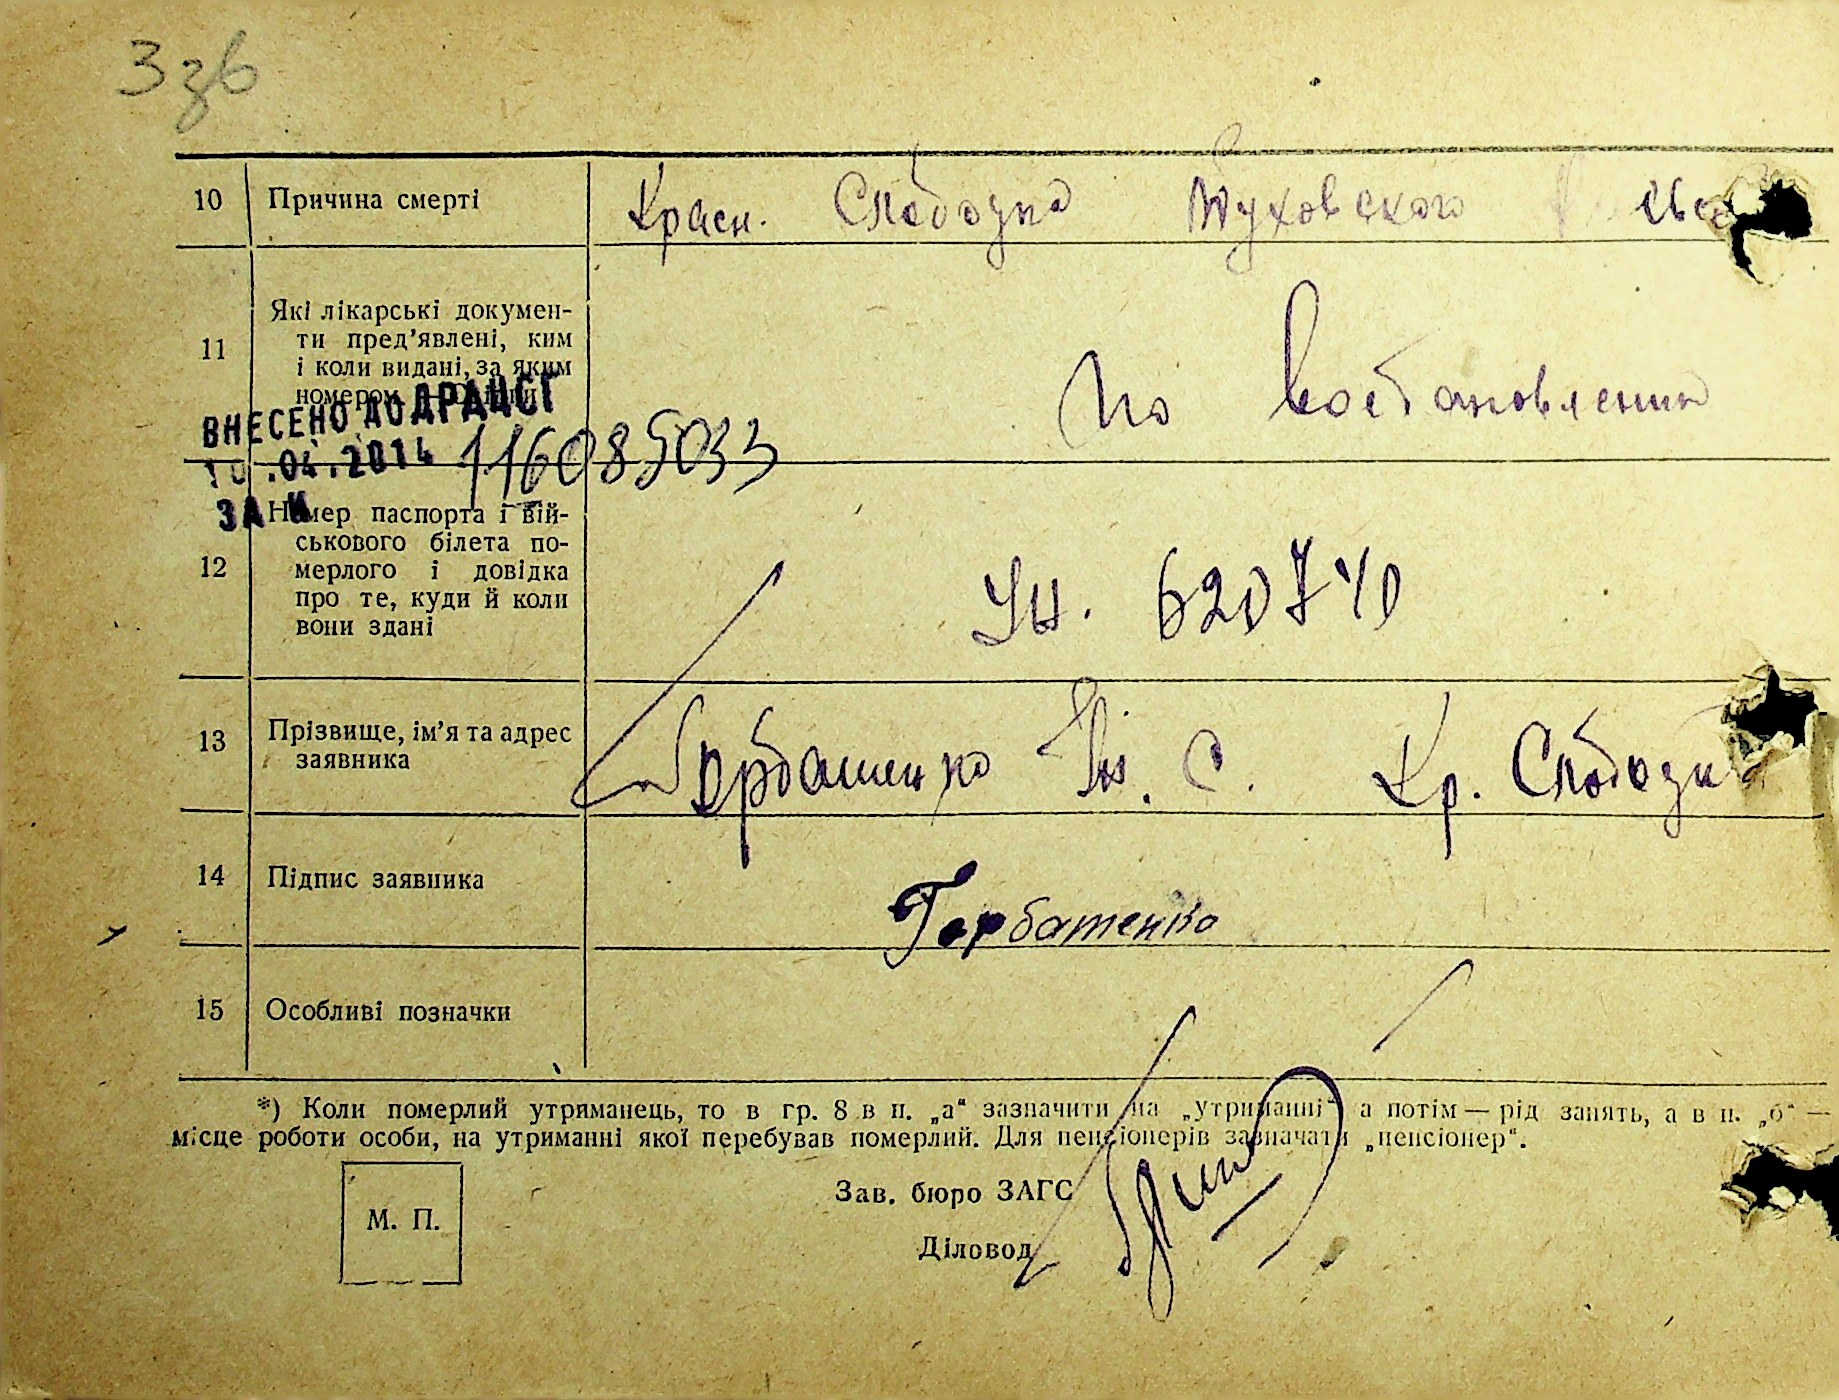 10 Причина смерті Красн. Слободка
11 Які лікарські докумен-
ти пред’явлені, ким
і коли видані, за яким
номером
По востановлению
ВНЕСЕНО ДО ДРАЦСГ
10.04.2014 116085033
12 Номер паспорта і вій-
ськового білета по-
мерлого і довідка
про те, куди й коли
вони здані
620740
13 Прізвище, ім’я та адрес
заявника
Горбатенко С. Кр. Слободка
14 Підпис заявника Горбатенко
15 Особливі позначки
*) Коли померлий утриманець, то в гр. 8 в п. „а“ зазначити „на утриманні“ а потім — рід занять, а в п. „б“ —
місце роботи особи, на утриманні якої перебував померлий. Для пенсіонерів зазначати „пенсіонер“.
М. П.
Зав. бюро ЗАГС
Діловод